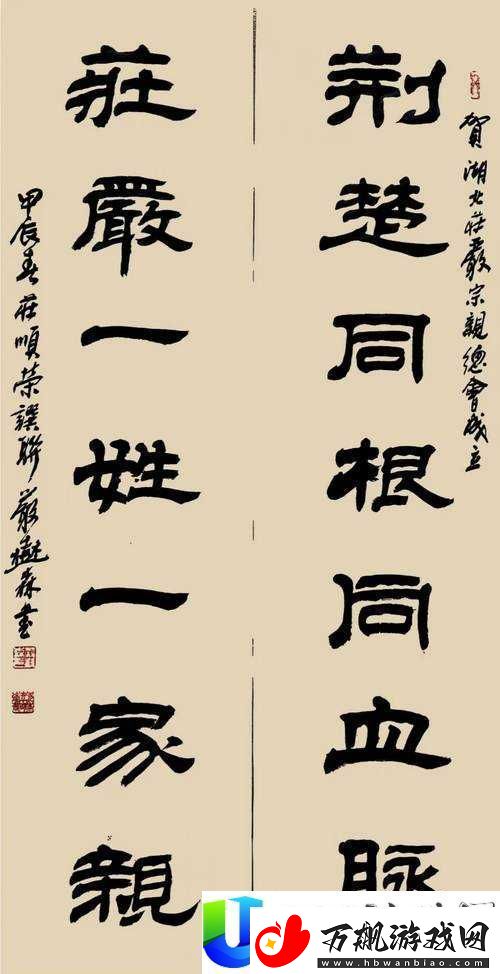 賀湖北莊嚴宗親總會成立
荆楚同根同血脈
莊嚴一姓一家親
甲辰春莊順榮譔聯嚴
森書
万飙游戏网
www.hbwanbiao.com